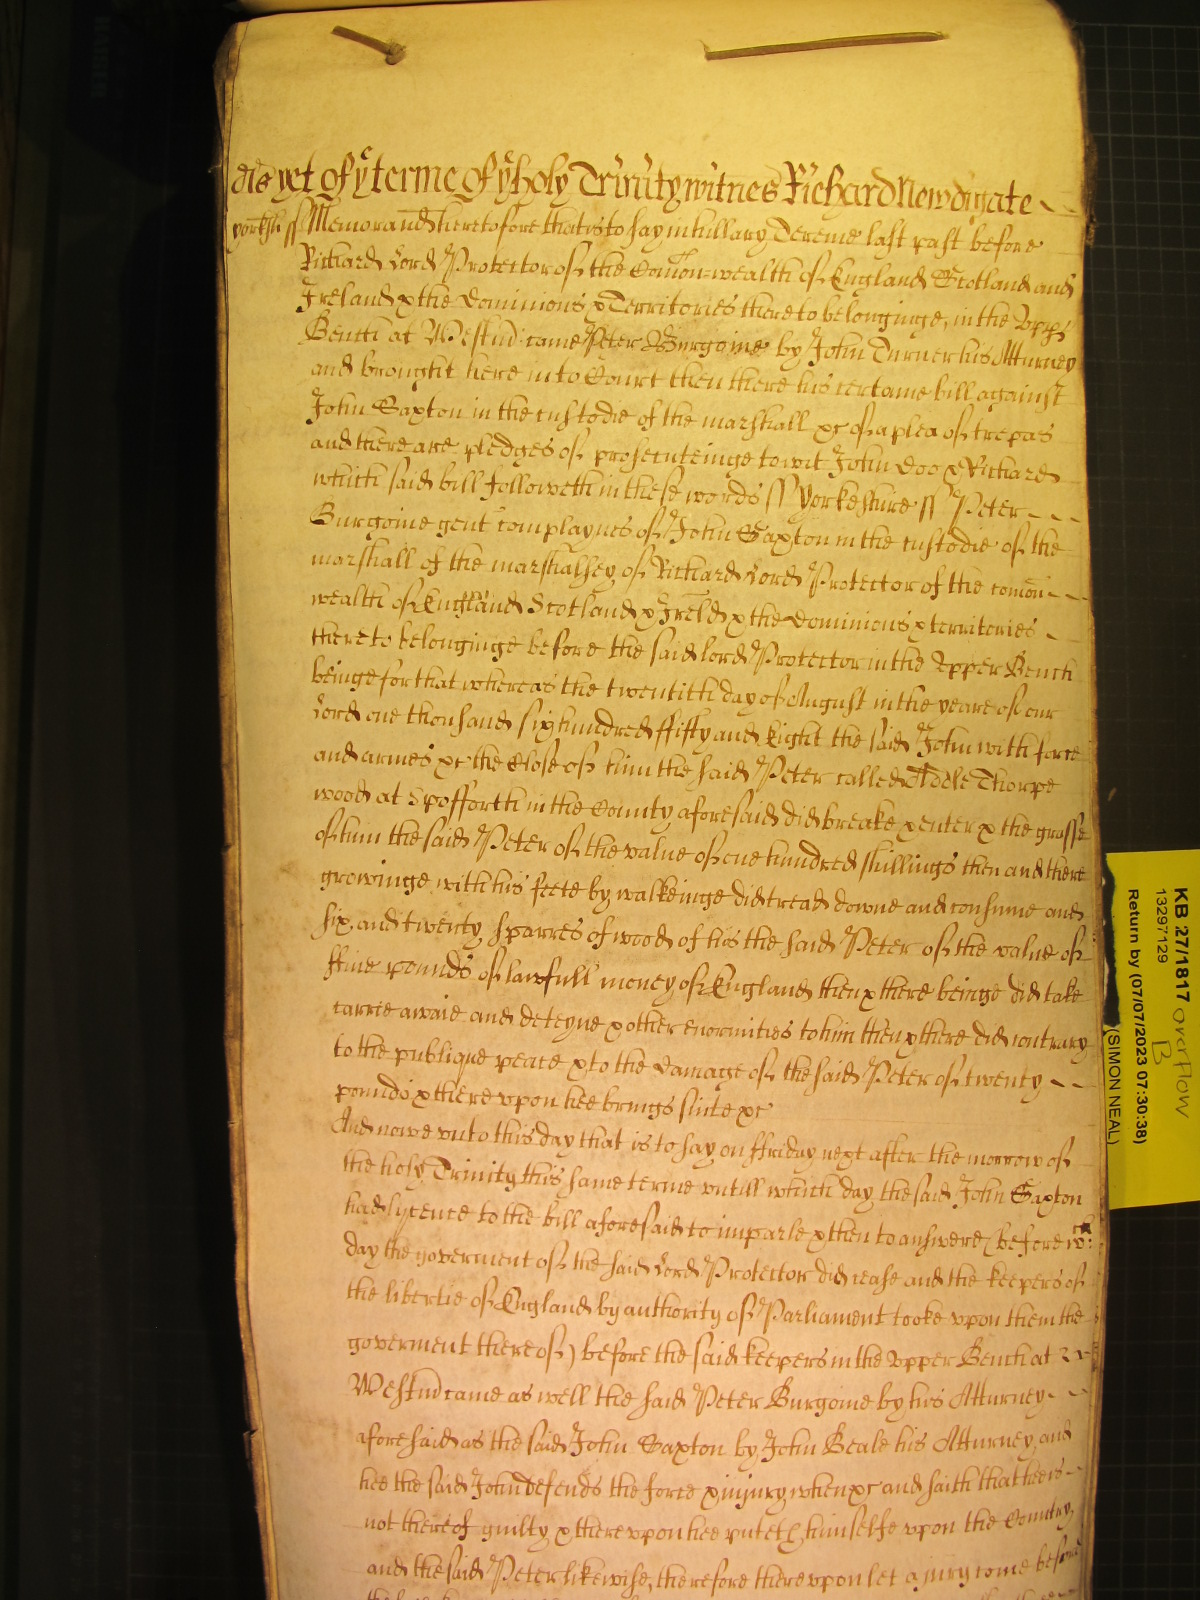 As yet of yᵉ terme of yᵉ holy Trinity witnes Richard Newdigate
yorksh ss Memorand heretofore that is to say in hillary Tereme last past before
Richard Lord Protector of the Com̅on=wealth of England Scotland and
Ireland & the dominions & Territories thereto belonginge, in the Upp
Bench at Westm̅ came Peter Burgoine by John Turner his Atturney
and brought here into Court then there his certaine bill against
John Saxton in the custodie of the marshall &c of a plea of trepas
and there are pledges of prosecuteinge to wit John doo & Richard
which said bill followeth in these words ss yorkeshire ss Peter
Burgoine gent complaynes of John Saxton in the custodie of the
marshall of the marshalsey of Richard Lord Protector of the com̅on
wealth of England Scotland & Ireld & the dominions & territories
thereto belonginge before the said lord Protector in the Upper Bench
beinge for that whereas the twentith day of August in the yeare of our
Lord one thousand six hundred ffifty and Eight the said John with force
and armes &c the Close of him the said Peter called Thorpe
wood at Spofforth in the County aforesaid did breake & enter & the grasse
of him the said Peter of the value of one hundred shillings then and there
growinge with his feete by walkeinge did tread downe and consume and
six and twenty sparres of wood of his the said Peter of the value of
ffive pounds of lawfull money of England then & there beinge did take
carrie awaie and deteyne & other enormities to him then & there did contrary
to the publique peace & to the damage of the said Peter of twenty
pounds & thereupon hee brings suite &c
And nowe unto this day that is to say on ffriday next after the morrow of
the holy Trinity this same terme untill which day the said John Saxton
had lycence to the bill aforesaid to imparle & then to answere (before wᶜʰ
day the goverment of the said Lord Protector did cease and the keepers of
the libertie of England by authority of Parliament tooke upon them the
goverment thereof) before the said keepers in the Upper Bench at
Westm̅ came as well the said Peter Burgoine by his Atturney
aforesaid as the said John Saxton by John Beale his Atturney, and
hee the said John defends the force & injury when &c and saith that hee is
not thereof guilty & thereupon hee puteth himselfe upon the Country
and the said Peter likewise, therefore thereupon let a jury come before
KB 27/1817 overflow
B
13297129
Return by (07/07/2023 07:30:38)
(SIMON NEAL)